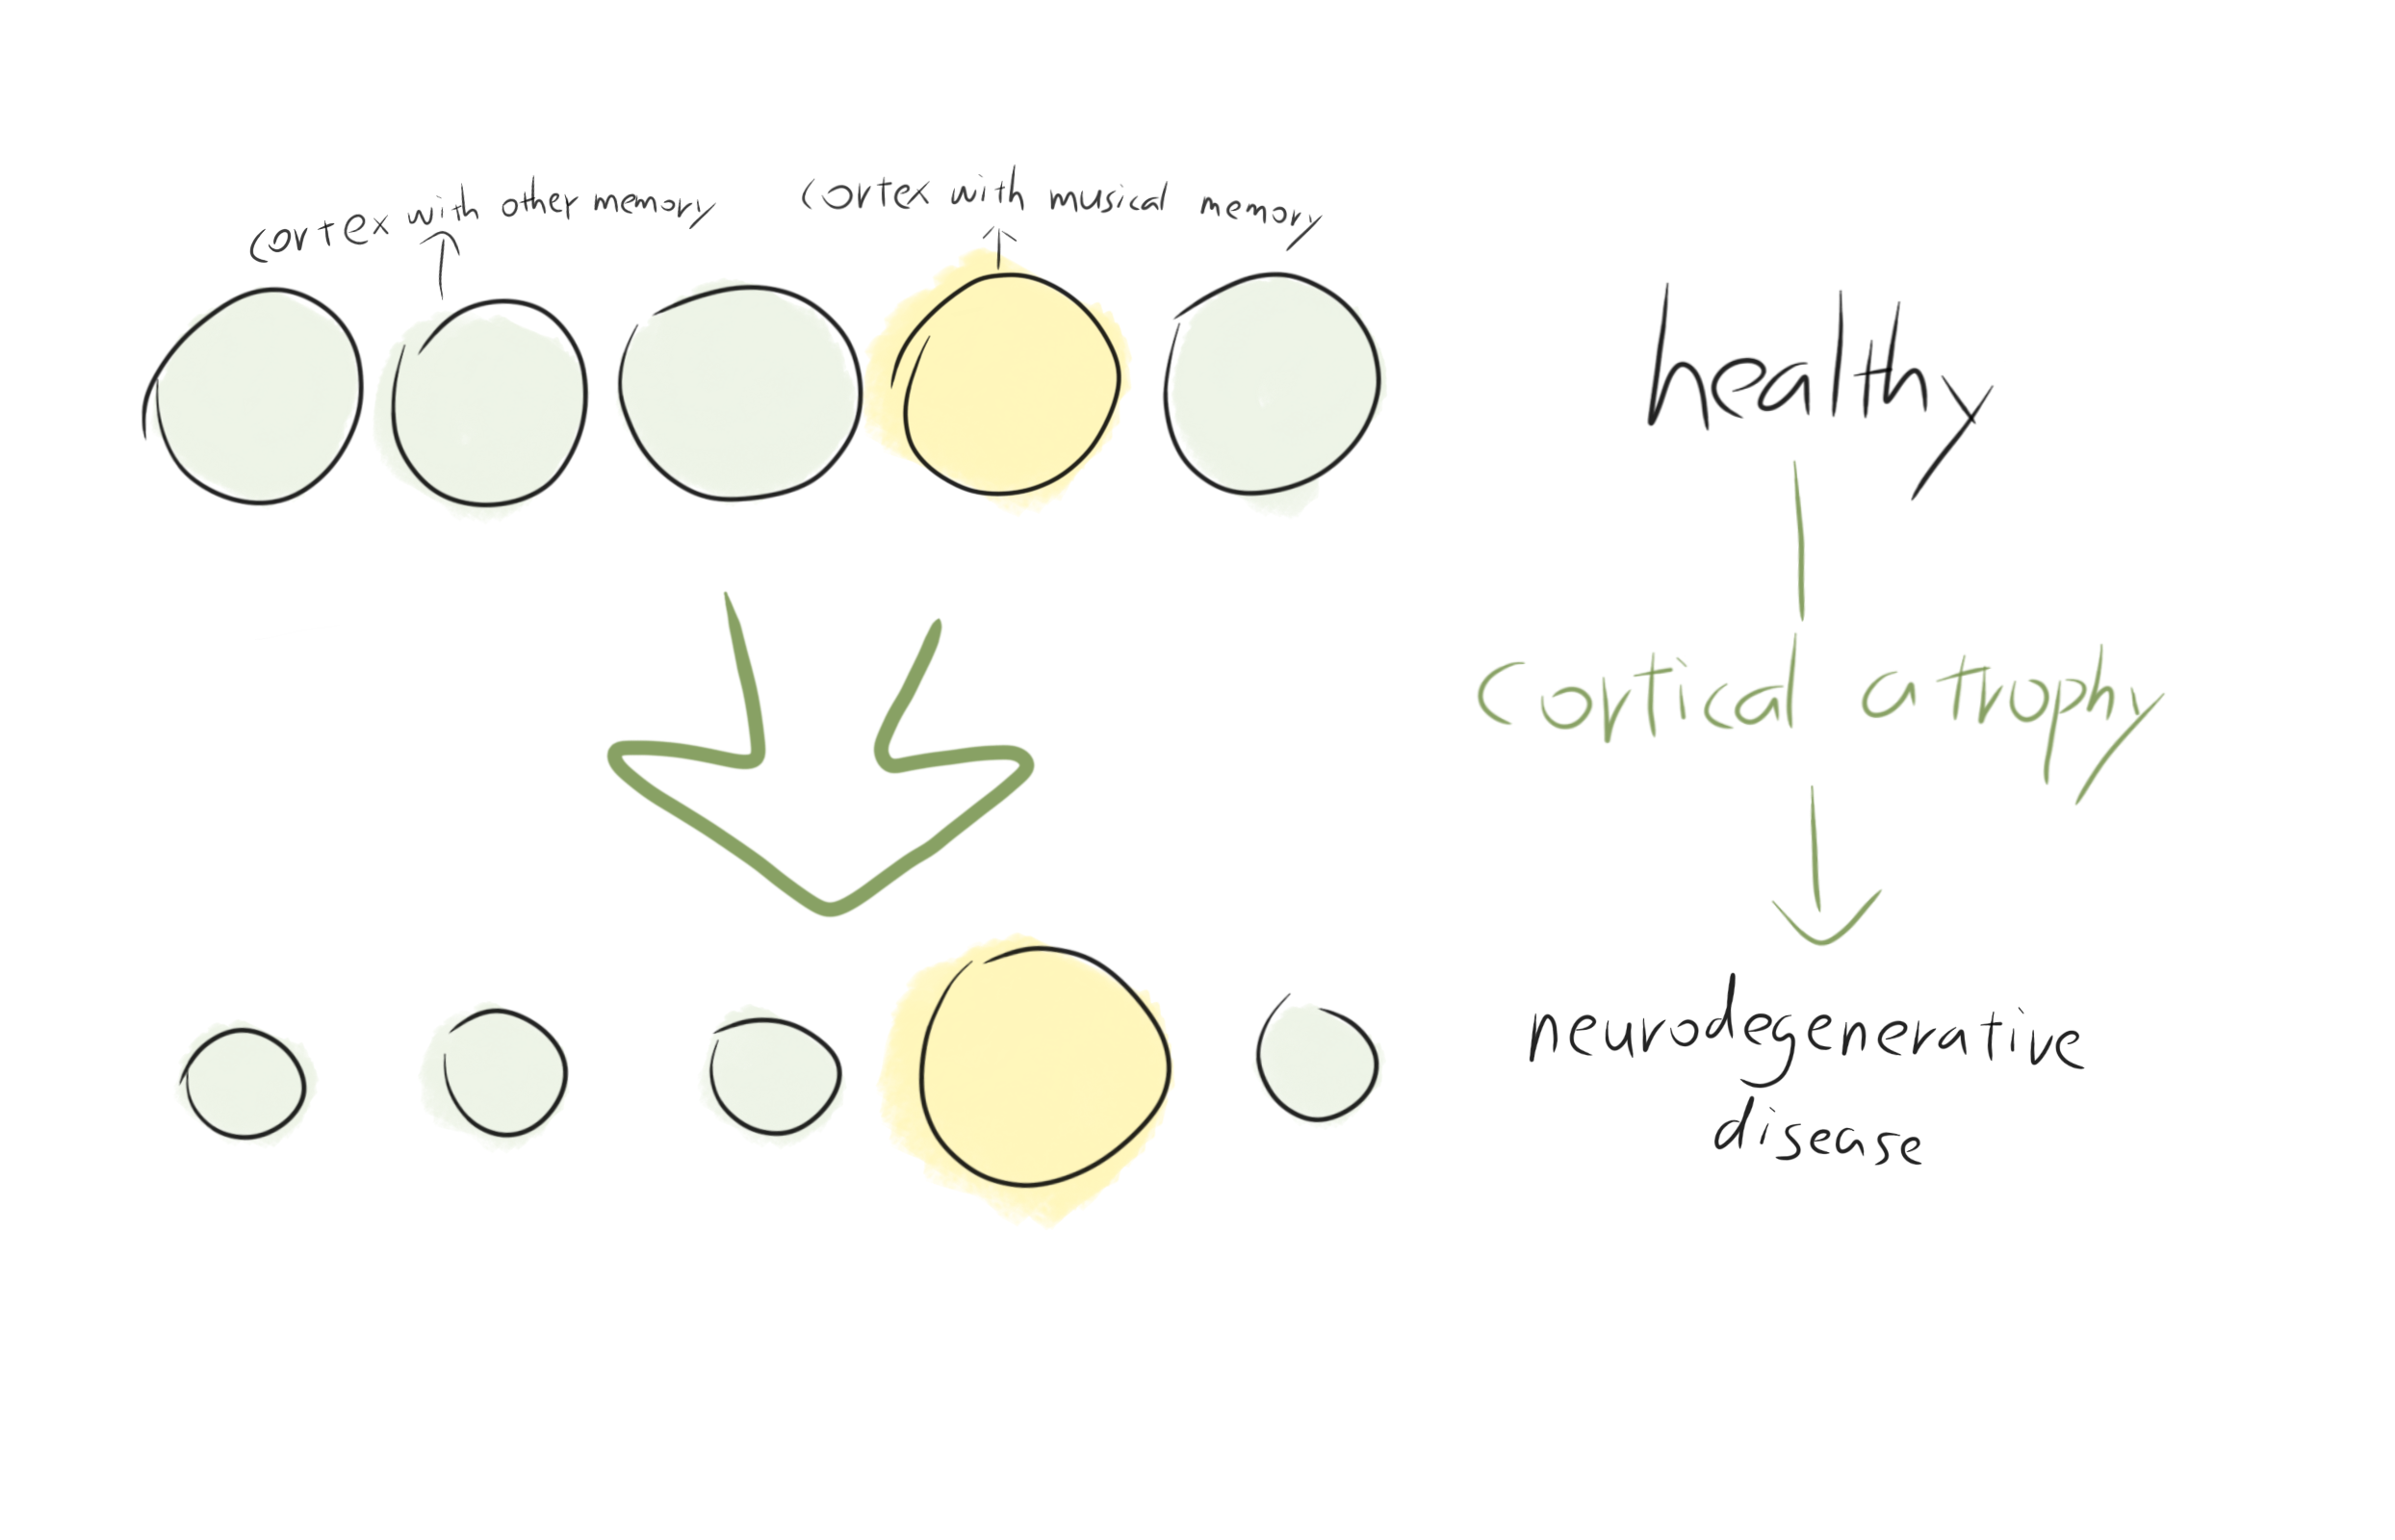 cortex with other memory
cortex with musical memory
healthy
cortical atrophy
neurodegenerative
disease